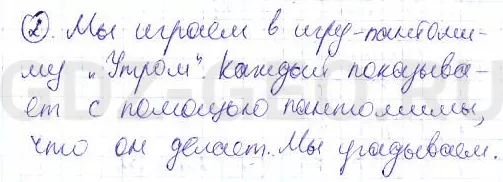 2). Мы играем в игру-пантоми-
му „Утром". Каждый показыва-
ет с помощью пантомимы,
что он делает. Мы угадываем.